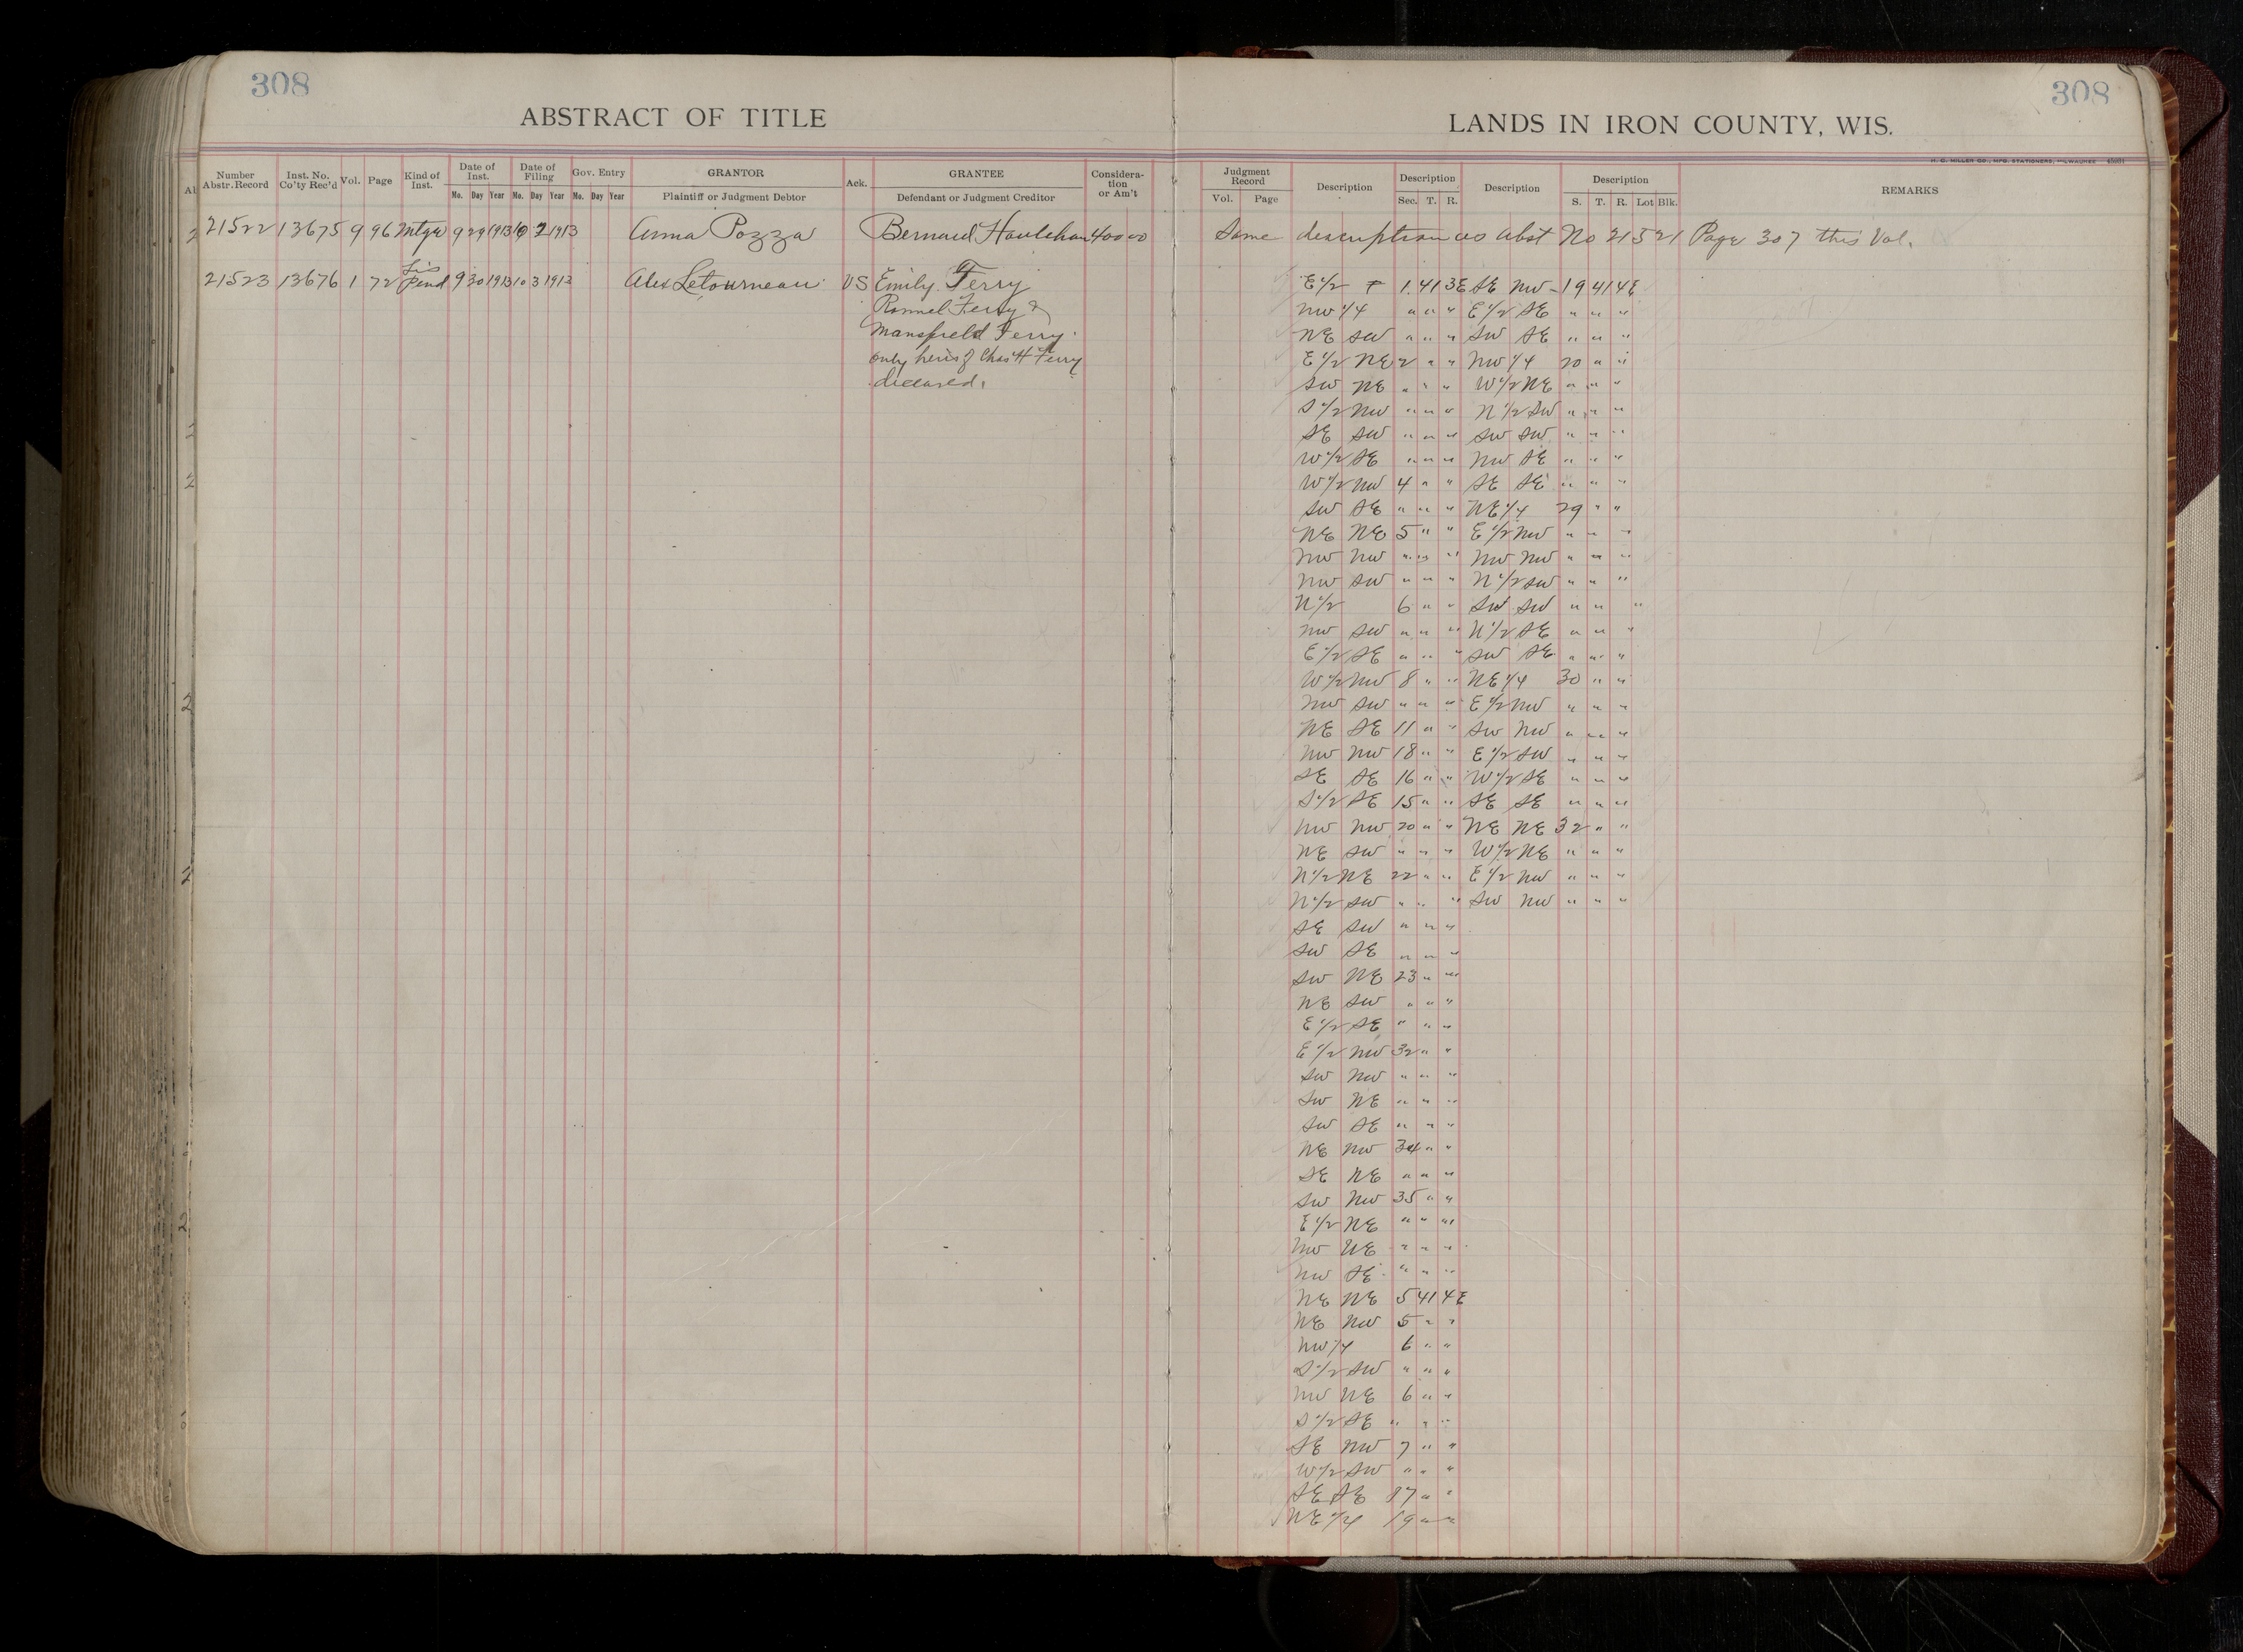 308
308
ABSTRACT OF TITLE
LANDS IN IRON COUNTY, WIS.
H. C. MILLER CO., MFG. STATIONERS, MILWAUKEE
Number Abstr. Record Inst. No. Co'ty Rec'd Vol. Page Kind of Inst. Date of Inst. Mo. Day Year Date of Filing Mo. Day Year Gov. Entry Mo. Day Year GRANTOR Plaintiff or Judgment Debtor Ack. GRANTEE Defendant or Judgment Creditor Considera-tion or Am't Judgment Record Vol. Page Description Description Sec. T. R. Description Description S. T. R. Lot Blk. REMARKS
21522 13675 9 96 Mtge 9 29 1913 10 2 1913 Anna Pozza Bernard Houlehan 400 00 Same description as Abst No 21521 Page 307 this Vol.
21523 13676 1 72 Lis Pend 9 30 1913 10 3 1913 Alex Letourneau VS Emily Ferry
Ronnel Ferry &
Mansfield Ferry
only heirs of Chas H Ferry
diceased.
E 1/2 1 41 3E SE NW 19 41 4E
NW 1/4 " " " E 1/2 SE " " "
NE SW " " " SW SE " " "
E 1/2 NE 2 " " NW 1/4 20 " "
SW NE " " " W 1/2 NE " " "
S 1/2 NW " " " N 1/2 SW " " "
SE SW " " " SW SW " " "
W 1/2 SE " " " NW SE " " "
W 1/2 NW 4 " " SE SE " " "
SW SE " " " NE 1/4 29 " "
NE NE 5 " " E 1/2 NW " " "
NW NW " " " NW NW " " "
NW SW " " " N 1/2 SW " " "
N 1/2 6 " " SW SW " " "
NW SW " " " N 1/2 SE " " "
E 1/2 SE " " " SW SE " " "
W 1/2 NW 8 " " NE 1/4 30 " "
NW SW " " " E 1/2 NW " " "
NE SE 11 " " SW NW " " "
NW NW 18 " " E 1/2 SW " " "
SE SE 16 " " W 1/2 SE " " "
S 1/2 SE 15 " " SE SE " " "
NW NW 20 " " NE NE 32 " "
NE SW " " " W 1/2 NE " " "
N 1/2 NE 22 " " E 1/2 NW " " "
N 1/2 SW " " " SW NW " " "
SE SW " " "
SW SE " " "
SW NE 23 " "
NE SW " " "
E 1/2 SE " " "
E 1/2 NW 32 " "
SW NW " " "
SW NE " " "
SW SE " " "
NE NW 34 " "
SE NE " " "
SW NW 35 " "
E 1/2 NE " " "
NW NE " " "
NW SE " " "
NE NE 5 41 4E
NE NW 5 " "
NW 1/4 6 " "
S 1/2 SW " " "
NW NE 6 " "
S 1/2 SE " " "
SE NW 7 " "
W 1/2 SW " " "
SE SE 17 " "
NE 1/4 19 " "